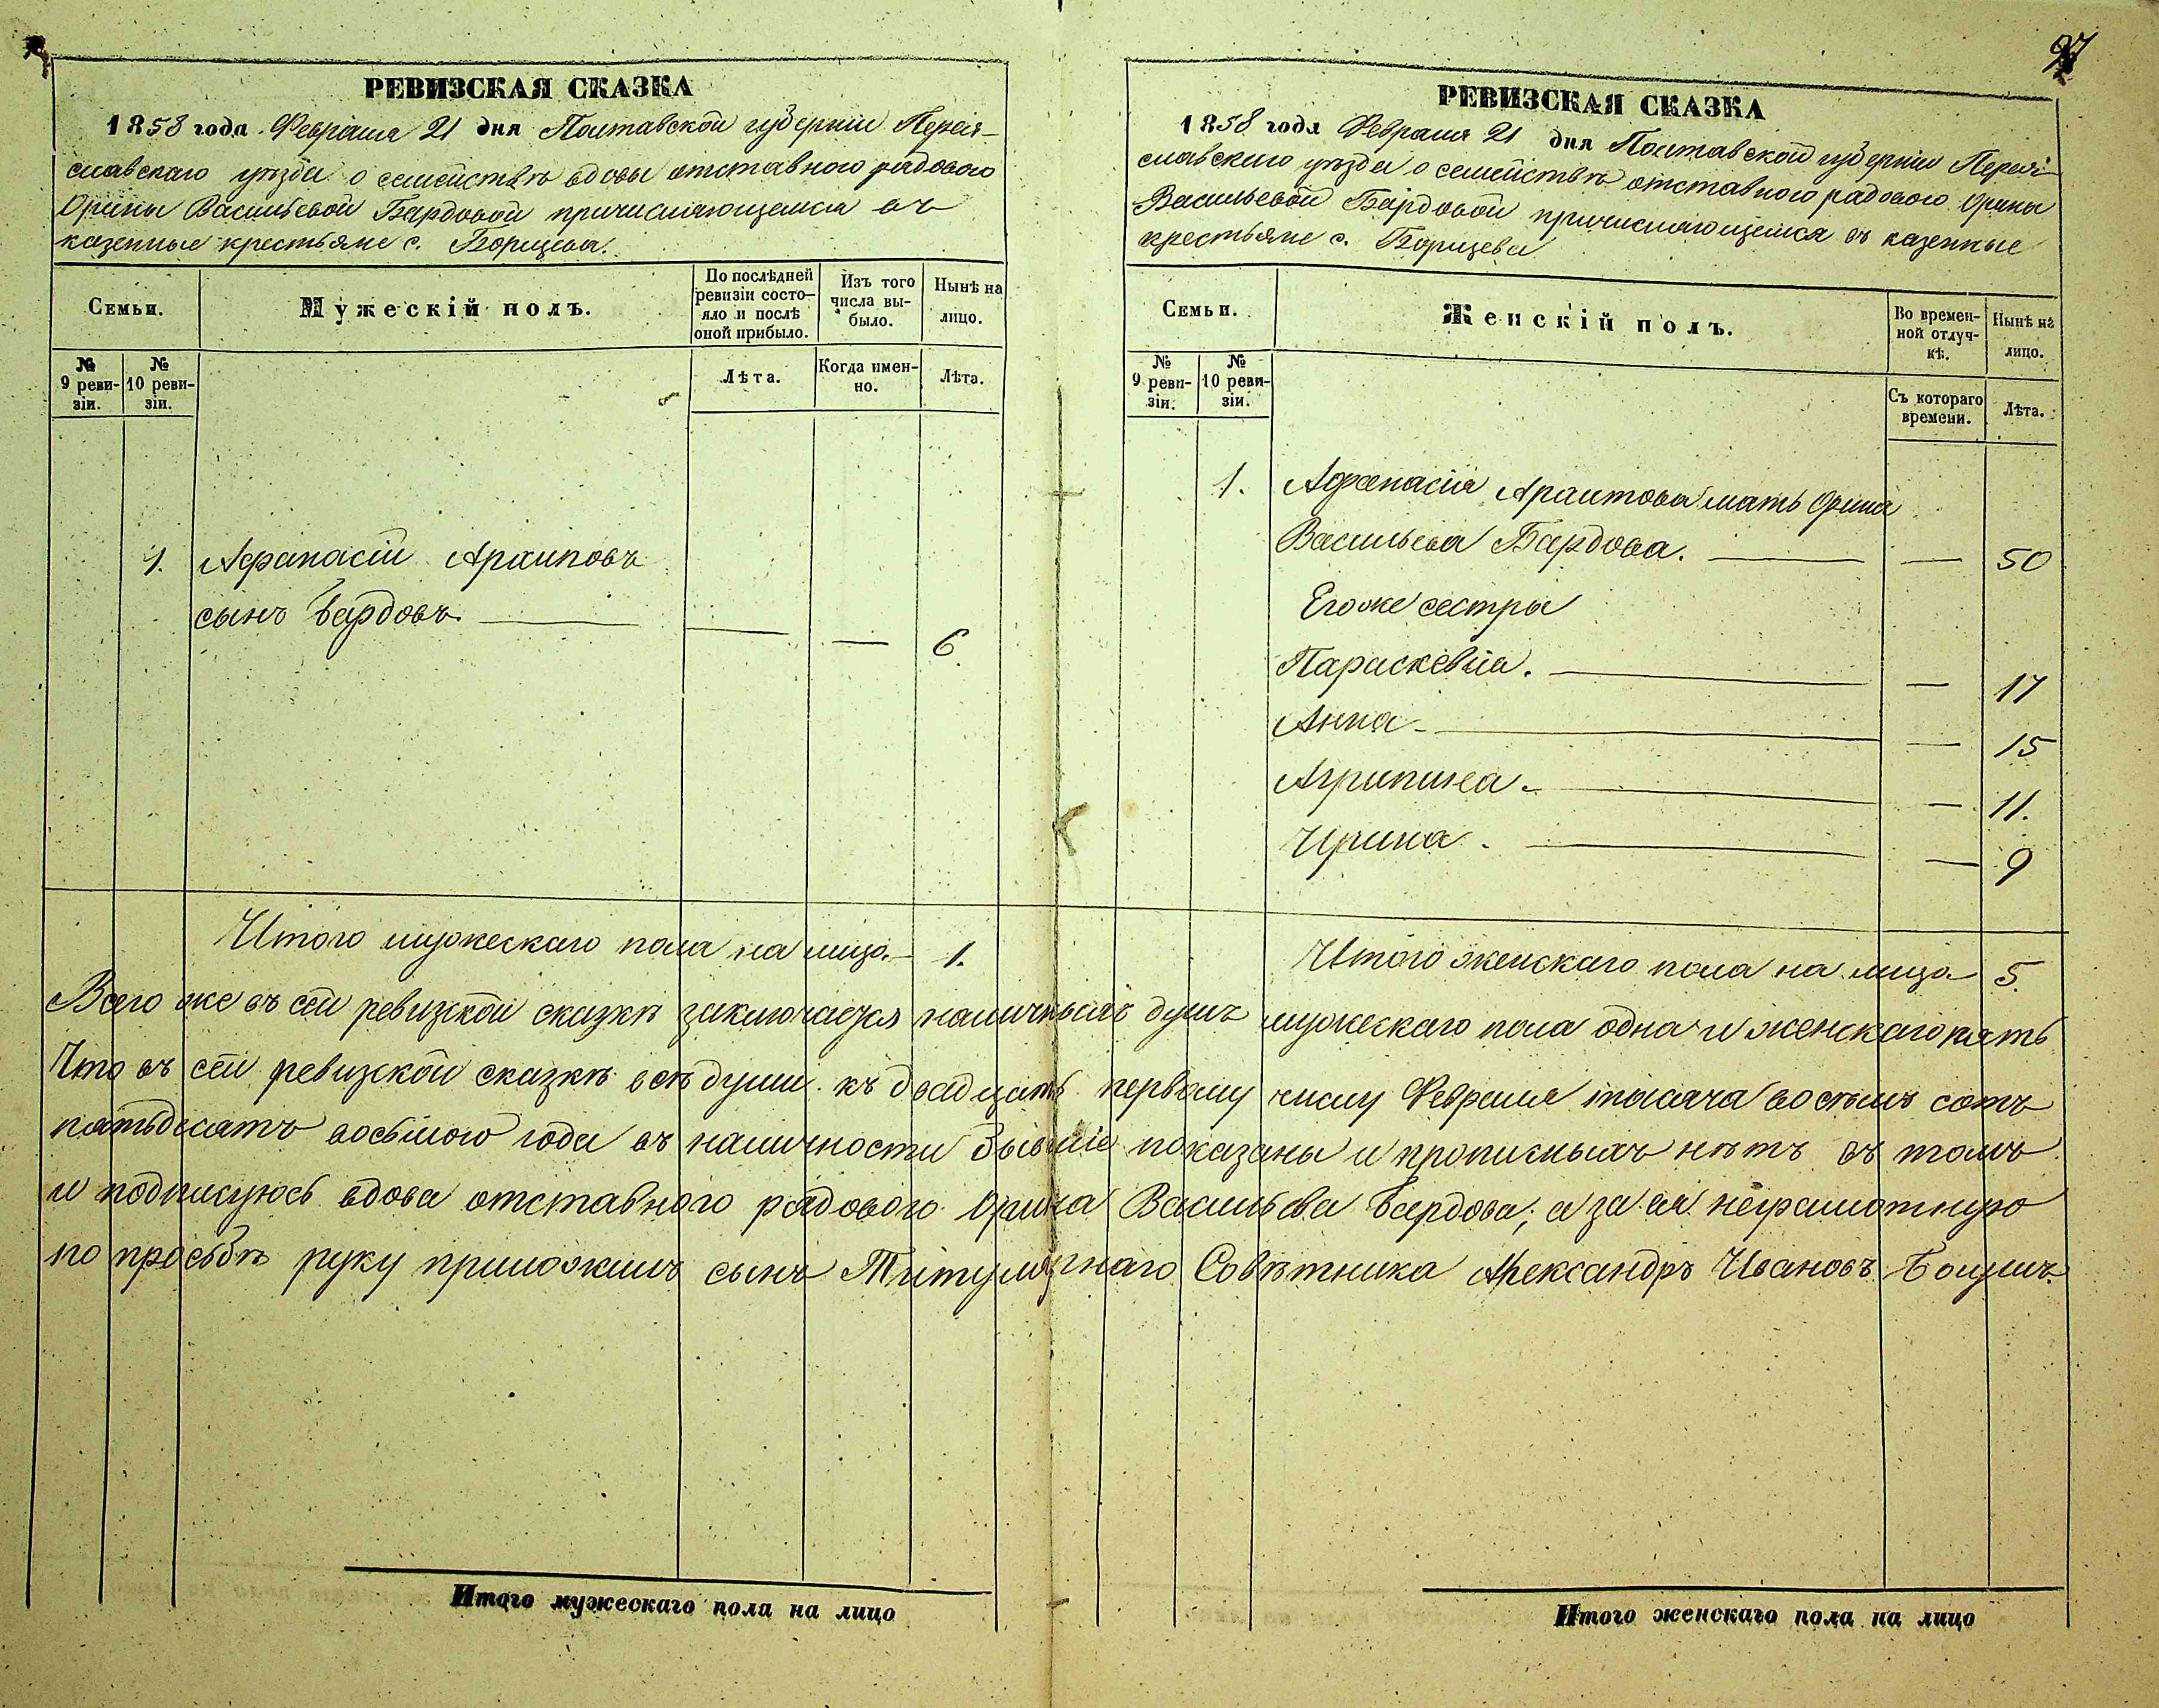 97
РЕВИЗСКАЯ СКАЗКА
1858 года Февраля 21 дня Полтавской губерніи Перея-
славскаго уѣзда о семействѣ вдовы отставного рядоваго
Орины Васильевой Бардовой причисляющемся въ
казенные крестьяне с. Борщева.
Семьи.
Мужескій полъ.
По послѣдней ревизіи состо-
яло и послѣ оной прибыло.
Изъ того числа вы-
было.
Нынѣ на лицо.
№ 9 реви-
зіи.
№ 10 реви-
зіи.
Лѣта.
Когда имен-
но.
Лѣта.
1. Афанасій Архиповъ
сынъ Бардовъ. — — — 6.
Итого мужескаго пола на лицо. — 1.
РЕВИЗСКАЯ СКАЗКА
1858 года Февраля 21 дня Полтавской губерніи Перея-
славскаго уѣзда о семействѣ отставного рядоваго Орины
Васильевой Бардовой причисляющемся въ казенные
крестьяне с. Борщева
Семьи.
Женскій полъ.
Во времен-
ной отлуч-
кѣ.
Нынѣ на лицо.
№ 9 реви-
зіи.
№ 10 реви-
зіи.
Съ котораго времени.
Лѣта.
1. Афанасія мать Орина
Васильева Бардова. — — 50
Егоже сестры
Параскевія. — — 17
Анна — — 15
Агрипина. — — 11.
Ирина. — — 9
Итого женскаго пола на лицо — 5.
Всего же въ сей ревизской сказкѣ заключается наличныхъ душъ мужескаго пола одна и женскаго пять
Что въ сей ревизской сказкѣ всѣ души къ двадцать первому числу Февраля тысяча восемь сотъ
пятьдесятъ восьмого года въ наличности бывшіе показаны и прописныхъ нѣтъ въ томъ
и подписуюсь вдова отставного рядового Орина Васильева Бардова; а за ея неграмотную
по просьбѣ руку приложилъ сынъ Титулярнаго Совѣтника Александръ Ивановъ
Итого мужескаго пола на лицо
Итого женскаго пола на лицо